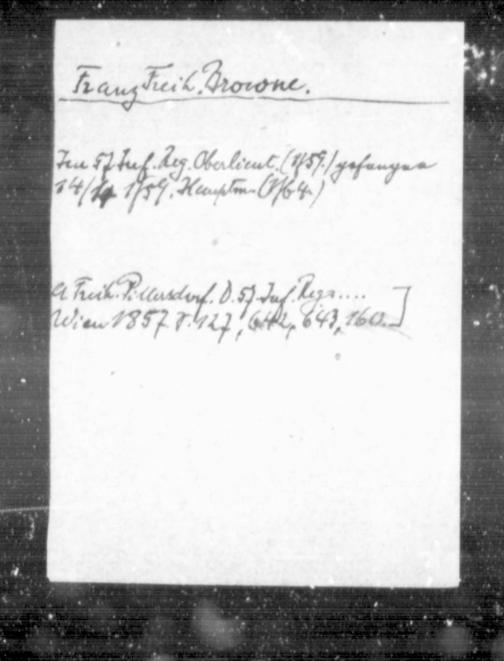 Franz Freih. Browne.
Im 57 Inf. Reg. Oberlieut. (1/59.) gefangen
14/ 1759. Hauptm. (1/64.)
A Freih. Pillersdorf. D. 57. Inf. Regs....
Wien 1857 S. 127, 642, 643, 160.]